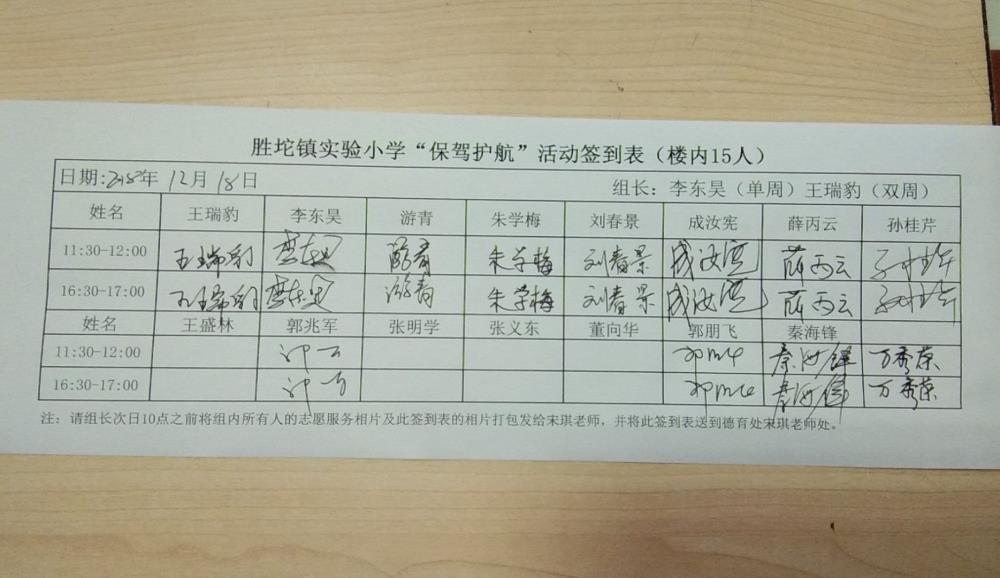 胜坨镇实验小学“保驾护航”活动签到表（楼内15人）
日期:2018年 12月 18日 组长：李东昊（单周）王瑞豹（双周）
姓名 王瑞豹 李东昊 游青 朱学梅 刘春景 成汝宪 薛丙云 孙桂芹
11:30-12:00 王瑞豹 李东昊 游青 朱学梅 刘春景 成汝宪 薛丙云 孙桂芹
16:30-17:00 王瑞豹 李东昊 游青 朱学梅 刘春景 成汝宪 薛丙云 孙桂芹
姓名 王盛林 郭兆军 张明学 张义东 董向华 郭朋飞 秦海锋
11:30-12:00 秦海锋 万秀荣
16:30-17:00 秦海锋 万秀荣
注：请组长次日10点之前将组内所有人的志愿服务相片及此签到表的相片打包发给宋琪老师，并将此签到表送到德育处宋琪老师处。